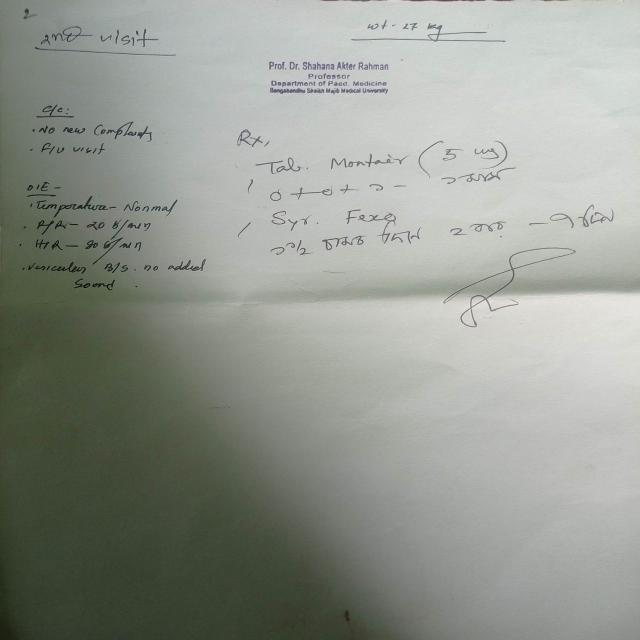 2
2nd visit
wt - 27 kg
Prof. Dr. Shahana Akter Rahman
Professor
Department of Paed. Medicine
Bangabandhu Sheikh Mujib Medical University
c/c:
. No new Complaints
. F/U visit
O/E -
. Temperature - Normal
. R/R - 20 b/min
. H/R - 90 b/min
. Vesicular B/S. no added
Sound.
Rx,
Tab. Montair (5 mg)
0+0+১ - ১ মাস
Syr. Fexo
১ ১/২ চামচ দিনে ২ বার - ৭ দিন